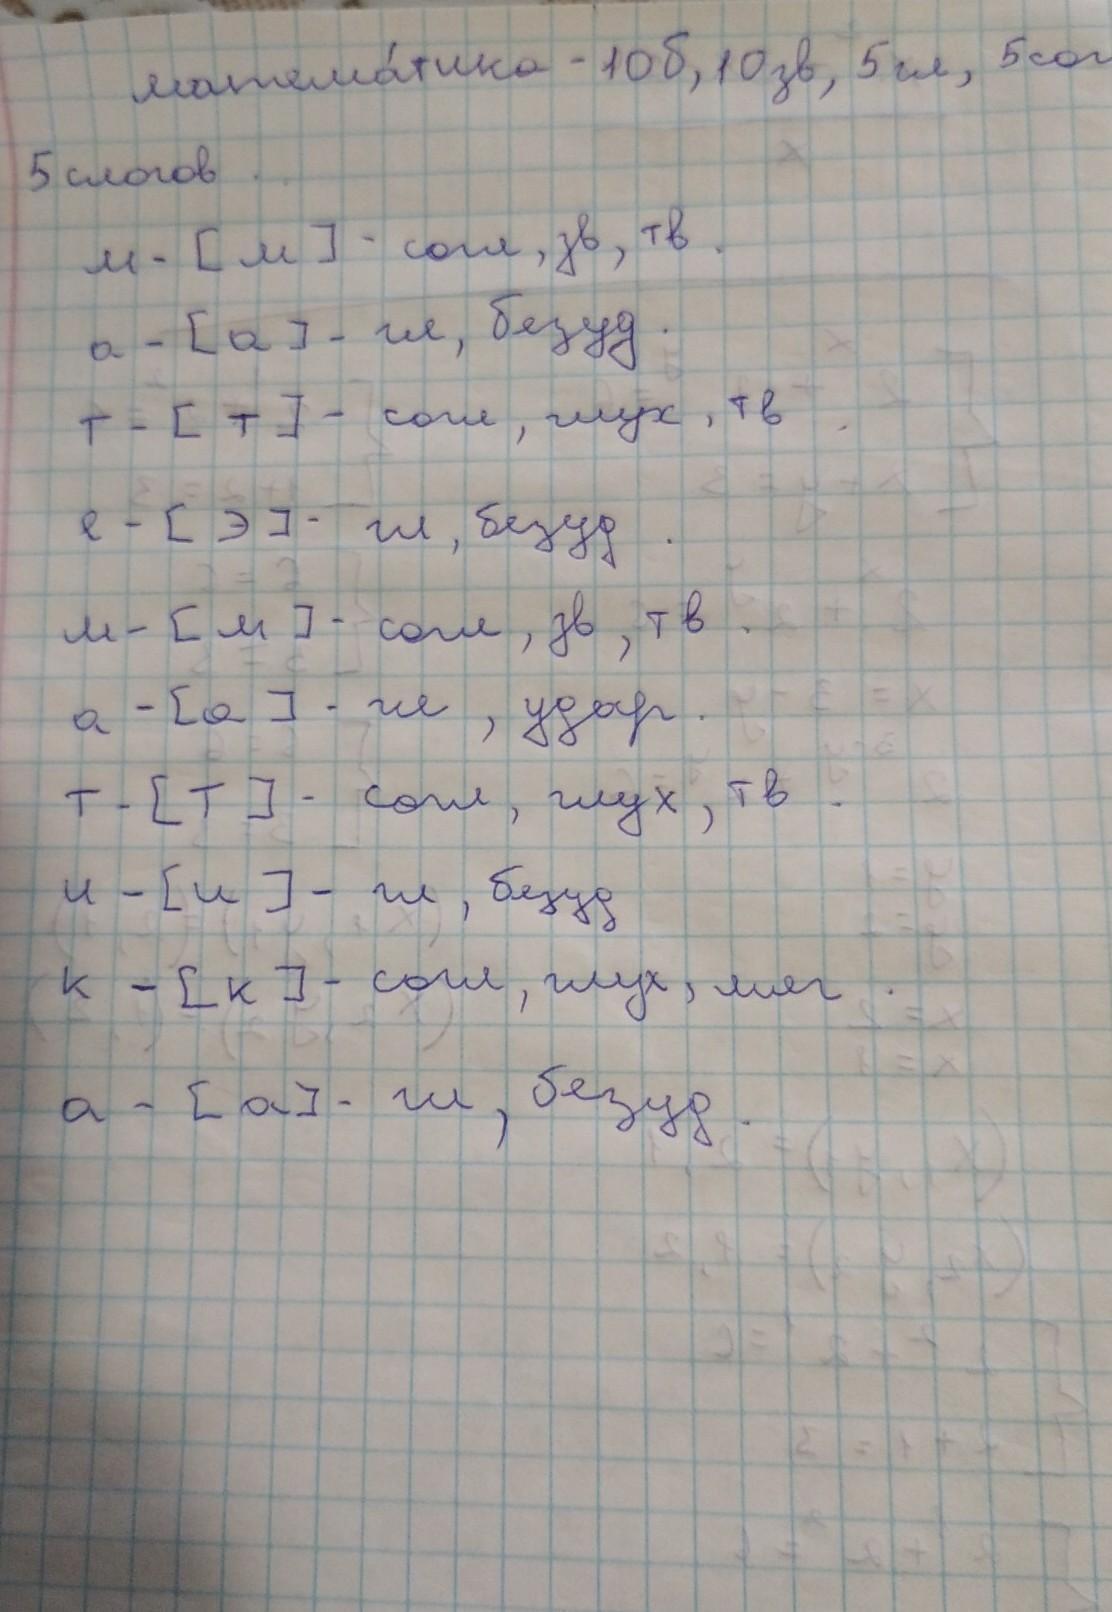 матема́тика - 10б, 10зв, 5гл, 5сог
5 слогов
м - [м] - согл, зв, тв.
а - [а] - гл, безуд.
т - [т] - согл, глух, тв.
е - [э] - гл, безуд.
м - [м] - согл, зв, тв.
а - [а] - гл, удар.
т - [т] - согл, глух, тв.
и - [и] - гл, безуд
к - [к] - согл, глух, мяг.
а - [а] - гл, безуд.